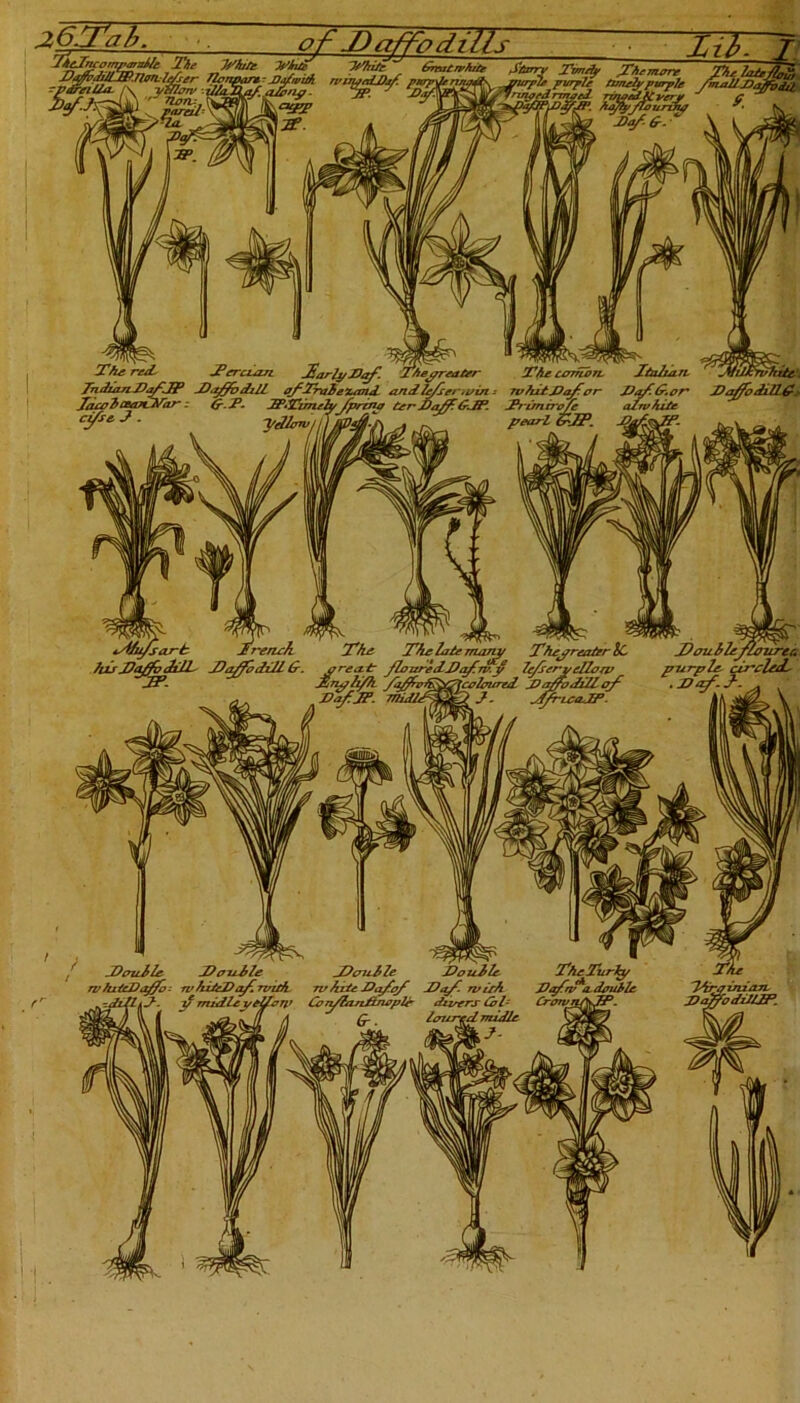 26 Tab. of Daffodills Lib. I
The Incomparable
Daffodill
The
lesser
yellow
White
White
Daf. with
a long
cupp
White
winged Daf.
Great white
purple ringed
Daf.
Starry
purple
ringed
Timely
purple
ringed
The more
timely purple
ringed & very
hasty flouring
Daf. G.
The late flou
small Daffodil
The red
Indian Daf. IP
Iacobæan Nar:
cisse J.
Percian
Daffodill
G. P.
Early Daf.
of Trabezand
IP. Timely spring
Yellow
The greater
and lesser win:
ter Daff. G. IP.
The comon
whit Daf. or
Primirose
pearl G. IP.
Italian
Daf. G. or
al white
Daf. IP.
Milk white
Daffodill G.
Mussart
his Daffodill
IP.
French
Daffodill G.
The
great
English
Daf. IP.
The late many
floured Daf. wth ye
saffron coloured
midle J.
The greater &
lesser yellow
Daffodill of
Africa. IP.
Double flourea
purple circled
Daf. J.
Double
white Daffo:
dill J.
Double
white Daf. with
ye midle yellow
Double
white Daf. of
Constantinople
G.
Double
Daf. with
divers Col:
loured midle
J.
The Turky
Daf. wth a double
Crown IP.
The
Virginian
Daffodill IP.